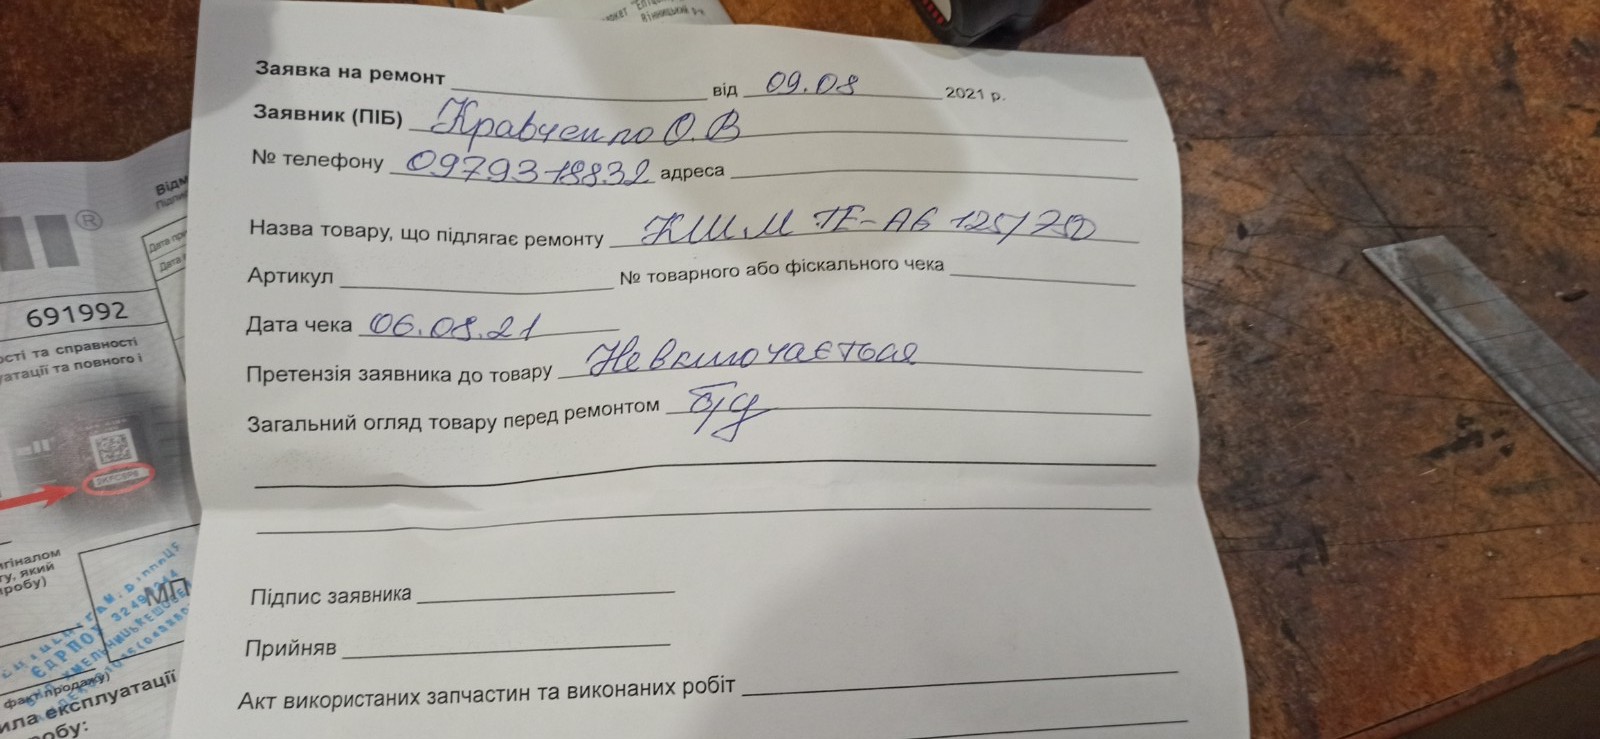 Вінницький р-н
Заявка на ремонт від 09.08 2021 р.
Заявник (ПІБ) Кравченко О.В
№ телефону 0979318832 адреса
Назва товару, що підлягає ремонту КШМ TE-AG 125/750
Артикул № товарного або фіскального чека
Дата чека 06.08.21
Претензія заявника до товару Не включається
Загальний огляд товару перед ремонтом б/у
Підпис заявника
Прийняв
Акт використаних запчастин та виконаних робіт
®
691992
ості та справності
уатації та повного і
гіналом
ту, який
робу)
МП
ЄДРПОУ
факт продажу)
ила експлуатації
обу: